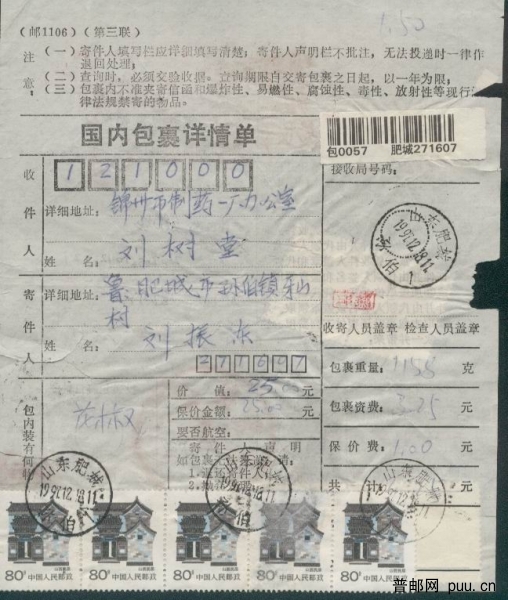 1.50
（邮1106）（第三联）
注意：
（一）寄件人填写栏应详细填写清楚；寄件人声明栏不批注，无法投递时一律作
退回处理；
（二）查询时，必须交验收据。查询期限自交寄包裹之日起，以一年为限；
（三）包裹内不准夹寄信函和爆炸性、易燃性、腐蚀性、毒性、放射性等现行
律法规禁寄的物品。
国内包裹详情单
包0057 肥城271607
接收局号码：
收件人
121000
详细地址：锦州市制药一厂办公室
姓名：刘树堂
寄件人
详细地址：鲁肥城市环伯镇
村
姓名：刘振东
山东肥城
1991.12.18.11
收寄人员盖章 检查人员盖章
包裹重量： 克
包裹资费：3.25 元
保价费：1.00 元
共计： 元
包内装有何
价值：25.00元
保价金额：25.00元
要否航空：
寄件人声明
如包裹
山东肥城
1991.12.18.11
山东肥城
山东肥城
80分 中国人民邮政
80分 中国人民邮政
80分 中国人民邮政
80分 中国人民邮政
80分 中国人民邮政
普邮网 puu.cn